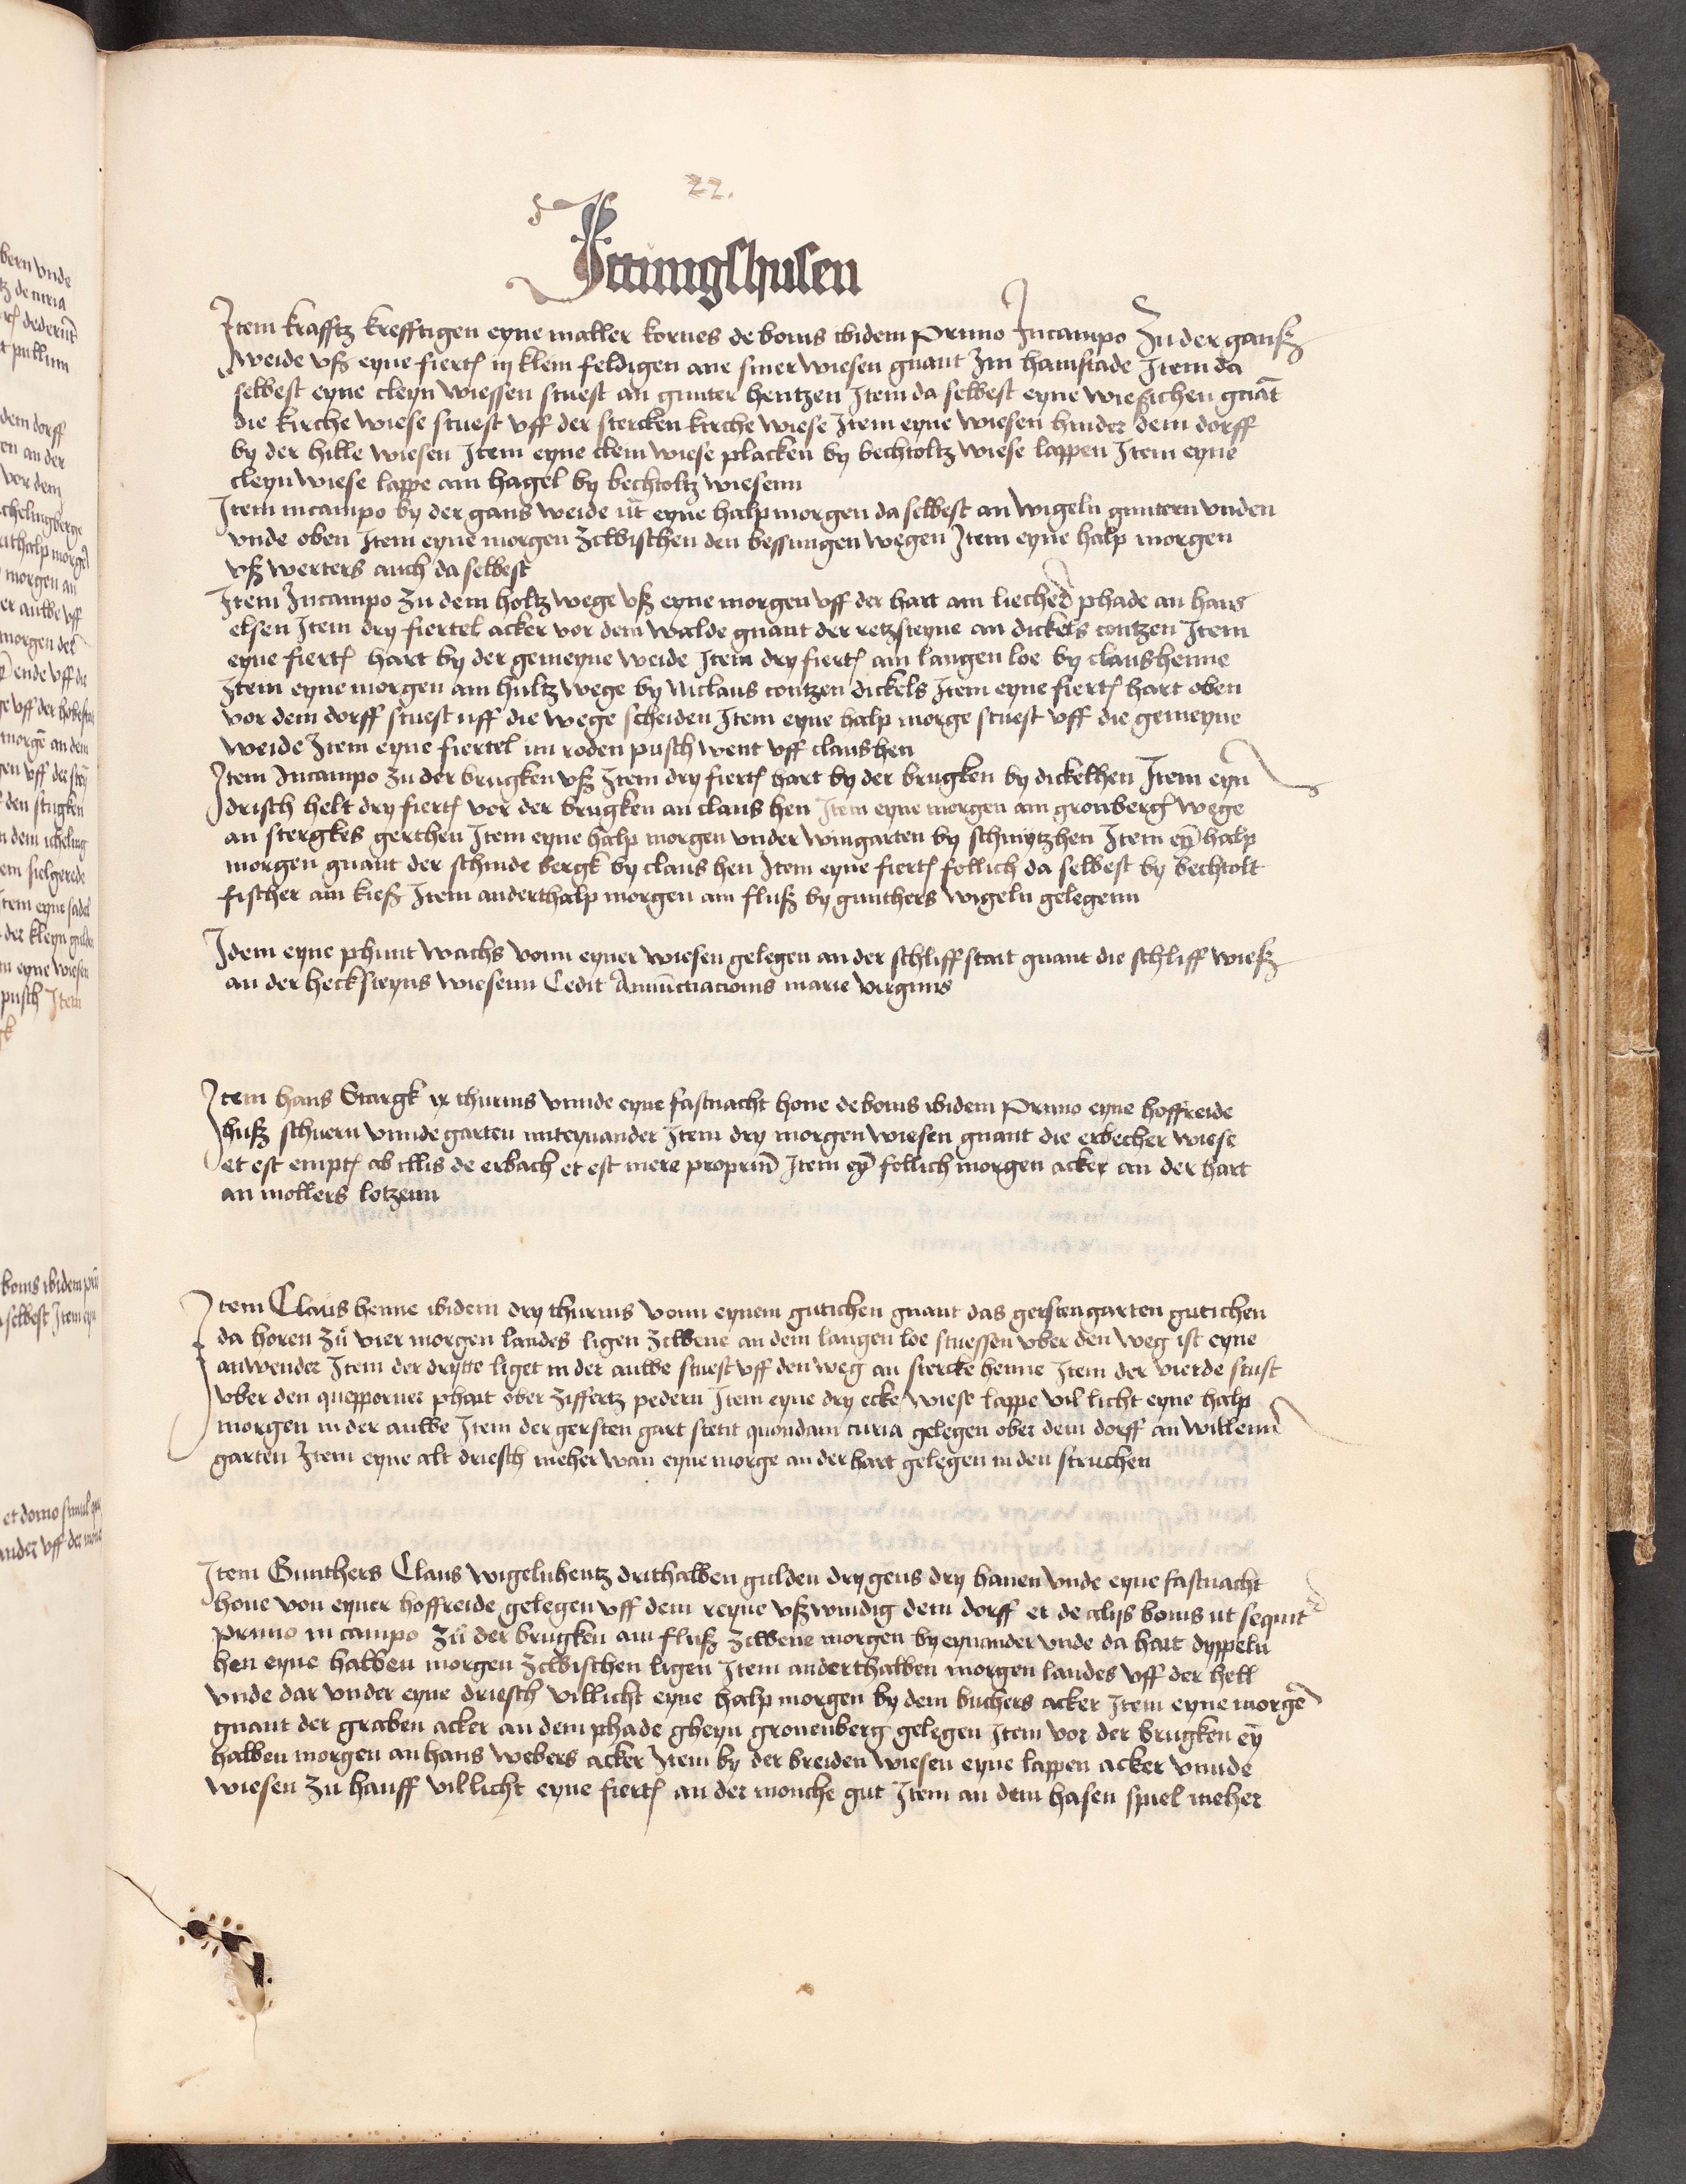 22.
Ittingshusen
Item krafftz krefftigen eyne malter kornes de bonis ibidem Primo Incampo Zu der ganß
weide vß eyne fiertꝭ iij klein feldigen ane siner wiesen gnant Im hainstade Item da
selbest eyne cleyn wiessen stuest an gunter hentzen Item da selbest eyne wiesichen gnāt
die kirche wiese stuest vff der stercken kirche wiese Item eyne wiesen hinder dem dorff
by der hille wiesen Item eyne clein wiese placken by bechtoltz wiese lappen Item eyne
cleyn wiese lappe am hagel by bechtoltz wiesenn
Item incampo by der gans weide ūt eyne halp morgen da selbest an wigeln guntern vnden
vnde oben Item eyne morgen zcwischen den bessingen wegen Item eyne halp morgen
vß werters auch da selbest
Item Incampo zu dem holtz wege vß eyne morgen vff der hart am lieched phade an hans
elsen Item dry fiertel acker vor dem walde gnant der retzsteyne an dickels contzen Item
eyne fiertꝭ hart by der gemeyne weide Item dry fiertꝭ am langen loe by claushenne
Item eyne morgen am hultz wege by Niclaus contzen dickels Item eyne fiertꝭ hart oben
vor dem dorff stuest uff die wege scheiden Item eyne halp morge stuest vff die gemeyne
weide Item eyne fiertel im roden pusch went vff claushen
Item Incampo zu der brugken vß Item dry fiertꝭ hart by der brugken by dickelhen Item eyn
drisch helt dry fiertꝭ vor der brugken an claus hen Item eyne morgen am gronbergꝭ wege
an stergkes gerthen Item eyne halp morgen vnder wingarten by schmytzhen Item eȳ halp
morgen gnant der schinde bergk by claus hen Item eyne fiertꝭ follich da selbest by bechtolt
fischer am kieß Item anderthalp morgen am fluß by gunthers wigeln gelegenn
Idem eyne phunt wachs vonn eyner wiesen gelegen an der schliff stait gnant die schliff wieß
an der hecksteyns wiesenn Cedit Annūctiacionis marie virginis
Item hans Stargk ix thurnis vnnde eyne fastnacht hone de bonis ibidem Primo eyne hoffreide
huß schuern vnnde garten miteynander Item dry morgen wiesen gnant die erbecher wiese
et est emptꝭ ab illis de erbach et est mere propriū Item eȳ follich morgen acker an der hart
an mollers lotzenn
Item Claus henne ibidem dry thurnis vonn eynem gutichen gnant das gerstengarten gutichen
da horen zu vier morgen landes ligen zcwene an dem langen loe stuessen vber den weg ist eyne
anwender Item der drytte liget in der auwe stuest vff den weg an stercke henne Item der vierde stust
vber den quepporner phait ober ziffertz pedern Item eyne dry ecke wiese lappe vil licht eyne halp
morgen in der auwe Item der gersten gart stetit quondam curia gelegen ober dem dorff an willenn
garten Item eyne alt driesch meher wan eyne morge an der hart gelegen in den struchen
Item Gunthers Claus wigelnhentz drithalben gulden dry gens dry hanen vnde eyne fastnacht
hone von eyner hoffreide gelegen vff dem reyne vßwindig dem dorff et de alijs bonis ut sequit
Primo in campo zu der brugken am fluß zcwene morgen by eynander vnde da hart dyppeln
hen eyne halben morgen zcwischen ligen Item anderthalben morgen landes vff der hell
vnde dar vnder eyne driesch villicht eyne halp morgen by dem buchers acker Item eyne morgē
gnant der graben acker an dem phade gheyn gronenberg gelegen Item vor der brugken eȳ
halben morgen an hans webers acker Item by der breiden wiesen eyne lappen acker vnnde
wiesen zu hauff villicht eyne fiertꝭ an der monche gut Item an dem hasen spiel meher